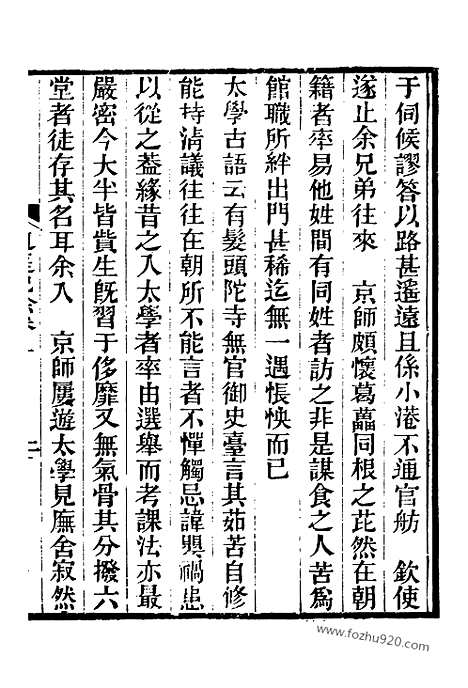 于伺候謬答以路甚遙遠且係小港不通官舫　欽使
遂止余兄弟往來　京師頗懷葛藟同根之芘然在朝
籍者率易他姓間有同姓者訪之非是謀食之人苦爲
館職所絆出門甚稀迄無一遇悵怏而已
太學古語云有髮頭陀寺無官御史臺言其茹苦自修
能持淸議往往在朝所不能言者不憚觸忌諱嬰禍患
以從之葢緣昔之入太學者率由選舉而考課法亦最
嚴密今大半皆貲生旣習于侈靡又無氣骨其分撥六
堂者徒存其名耳余入　京師屢遊太學見廡舍寂然
二
www.fozhu920.com